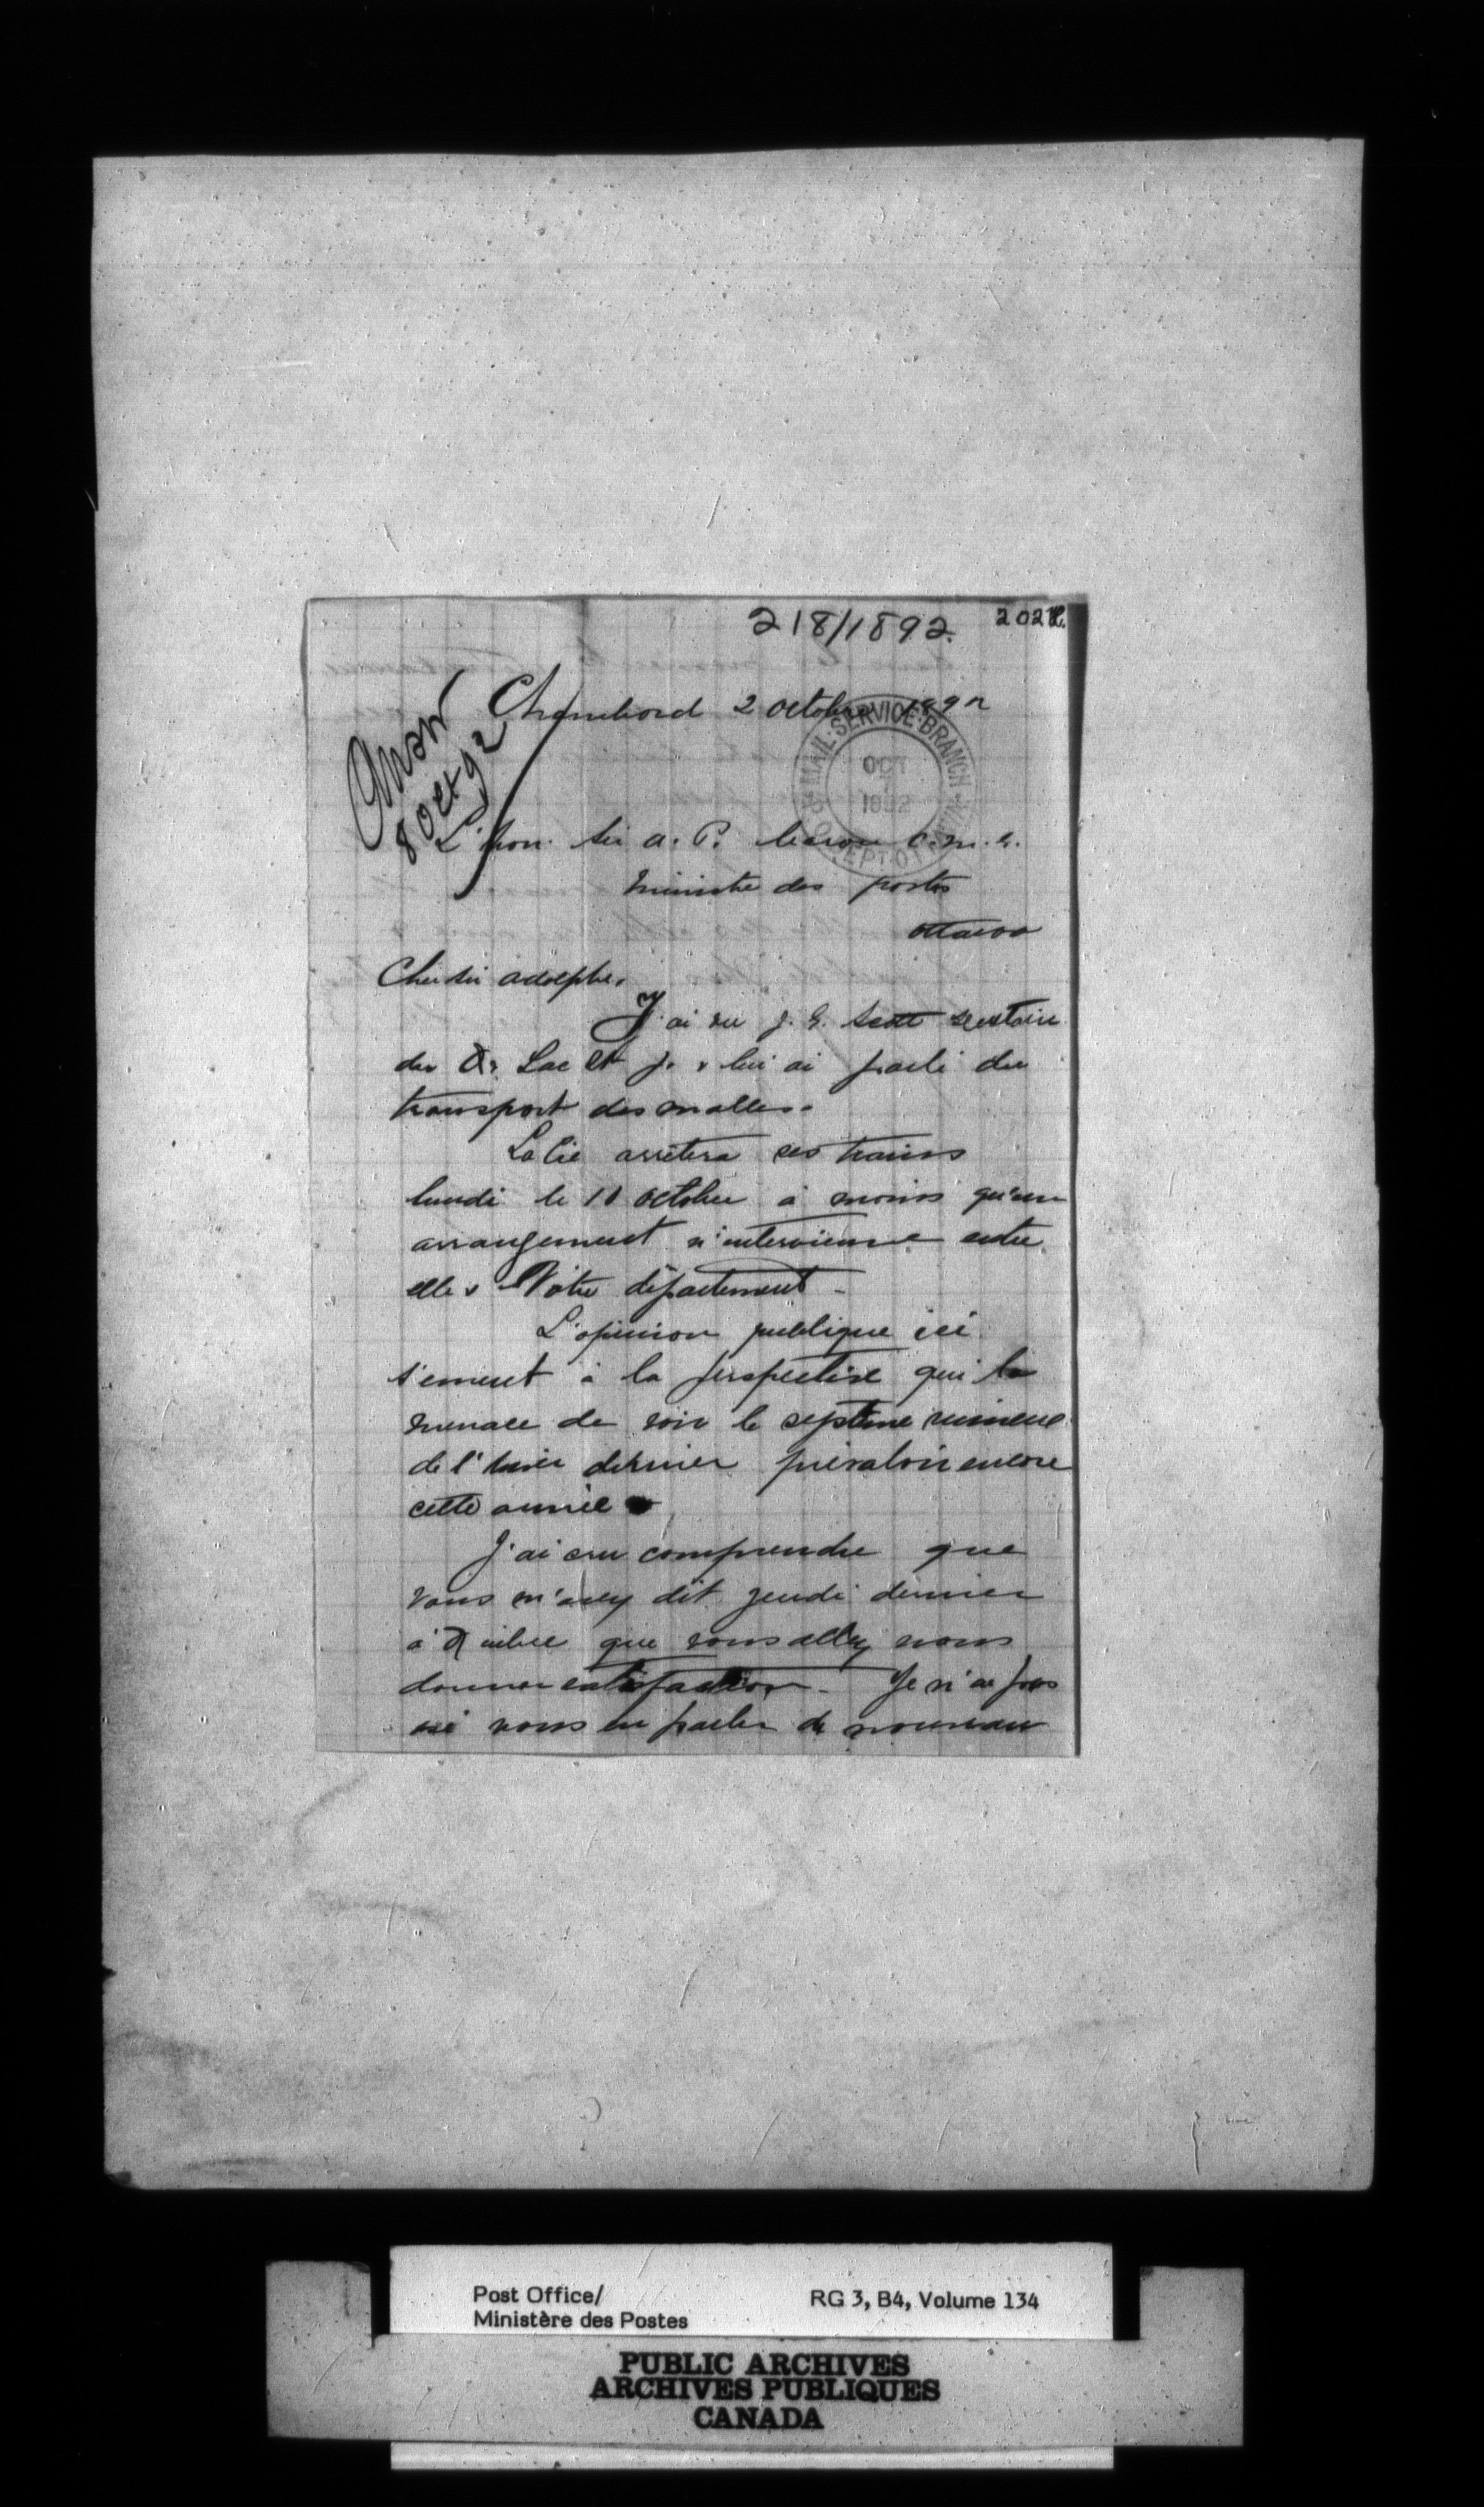 218/1892.
202
Answd
8 Oct 92
Chambord 2 octobre 1892
MAIL SERVICE BRANCH
OCT
1892
L'hon. Sir A. P. Caron C.M.G.
ministre des postes
Ottawa
Cher Sir Adolphe,
J'ai vu J. G. Scott secrétaire
du Q. Lac St J. & lui ai parlé du
transport des malles.
La Cie arrêtera ses trains
lundi le 10 octobre à moins qu'un
arrangement n'intervienne entre
elle & Votre département -
L'opinion publique ici
s'émeut à la perspective qui la
menace de voir le système ruineux
de l'hiver dernier prévaloir encore
cette année
J'ai cru comprendre que
vous m'avez dit jeudi dernier
à Québec que vous alliez nous
donner satisfaction - Je n'ai pas
osé vous en parler de nouveau
Post Office/
Ministère des Postes
RG 3, B4, Volume 134
PUBLIC ARCHIVES
ARCHIVES PUBLIQUES
CANADA